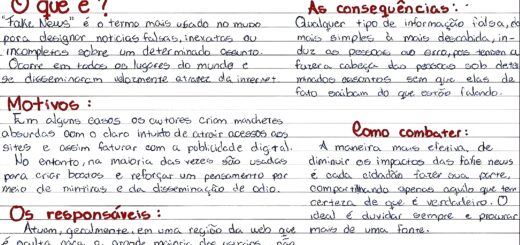 O que é ?
"Fake News" é o termo mais usado no mundo
para designar notícias falsas, inexatas ou
incompletas sobre um determinado assunto.
Ocorre em todos os lugares do mundo e
se disseminaram velozmente através da internet.
Motivos :
Em alguns casos os autores criam manchetes
absurdas com o claro intuito de atrair acessos aos
sites e assim faturar com a publicidade digital.
No entanto, na maioria das vezes são usadas
para criar boatos e reforçar um pensamento por
meio de mentiras e da disseminação de ódio.
Os responsáveis :
Atuam, geralmente, em uma região da web que
é oculta para a grande maioria dos usuários, não
As consequências :
Qualquer tipo de informação falsa, da
mais simples à mais descabida, in-
duz as pessoas ao erro, pois tendem a
fazer a cabeça das pessoas sob deter
minados assuntos sem que elas de
fato saibam do que estão falando.
Como combater :
A maneira mais efetiva, de
diminuir os impactos das fake news
é cada cidadão fazer sua parte,
compartilhando apenas aquilo que tem
certeza de que é verdadeiro. O
ideal é duvidar sempre e procurar
mais de uma fonte.